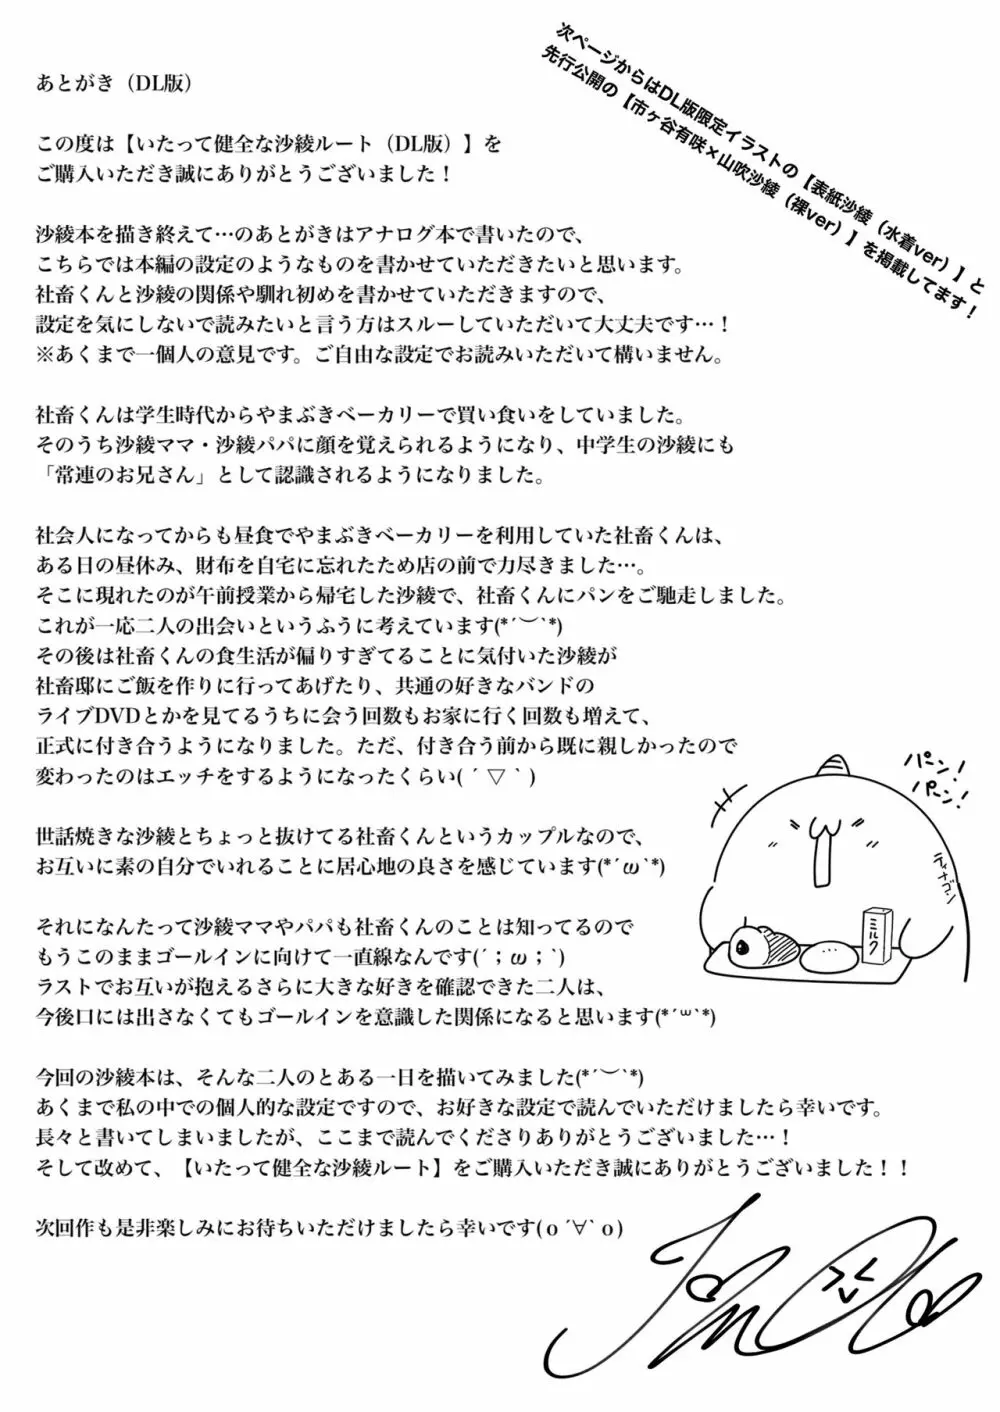 あとがき（DL版）
次ページからはDL版限定イラストの【表紙沙綾（水着ver）】と
先行公開の【市ヶ谷有咲×山吹沙綾（裸ver）】を掲載してます！
この度は【いたって健全な沙綾ルート（DL版）】を
ご購入いただき誠にありがとうございました！
沙綾本を描き終えて…のあとがきはアナログ本で書いたので、
こちらでは本編の設定のようなものを書かせていただきたいと思います。
社畜くんと沙綾の関係や馴れ初めを書かせていただきますので、
設定を気にしないで読みたいと言う方はスルーしていただいて大丈夫です…！
※あくまで一個人の意見です。ご自由な設定でお読みいただいて構いません。
社畜くんは学生時代からやまぶきベーカリーで買い食いをしていました。
そのうち沙綾ママ・沙綾パパに顔を覚えられるようになり、中学生の沙綾にも
「常連のお兄さん」として認識されるようになりました。
社会人になってからも昼食でやまぶきベーカリーを利用していた社畜くんは、
ある日の昼休み、財布を自宅に忘れたため店の前で力尽きました…。
そこに現れたのが午前授業から帰宅した沙綾で、社畜くんにパンをご馳走しました。
これが一応二人の出会いというふうに考えています(*´︶`*)
その後は社畜くんの食生活が偏りすぎてることに気付いた沙綾が
社畜邸にご飯を作りに行ってあげたり、共通の好きなバンドの
ライブDVDとかを見てるうちに会う回数もお家に行く回数も増えて、
正式に付き合うようになりました。ただ、付き合う前から既に親しかったので
変わったのはエッチをするようになったくらい( ´ ▽ ` )
世話焼きな沙綾とちょっと抜けてる社畜くんというカップルなので、
お互いに素の自分でいれることに居心地の良さを感じています(*´ω`*)
それになんたって沙綾ママやパパも社畜くんのことは知ってるので
もうこのままゴールインに向けて一直線なんです(´；ω；`)
ラストでお互いが抱えるさらに大きな好きを確認できた二人は、
今後口には出さなくてもゴールインを意識した関係になると思います(*´꒳`*)
今回の沙綾本は、そんな二人のとある一日を描いてみました(*´︶`*)
あくまで私の中での個人的な設定ですので、お好きな設定で読んでいただけましたら幸いです。
長々と書いてしまいましたが、ここまで読んでくださりありがとうございました…！
そして改めて、【いたって健全な沙綾ルート】をご購入いただき誠にありがとうございました！！
次回作も是非楽しみにお待ちいただけましたら幸いです( o ´∀` o )
パーン！
パーン！
ミルク